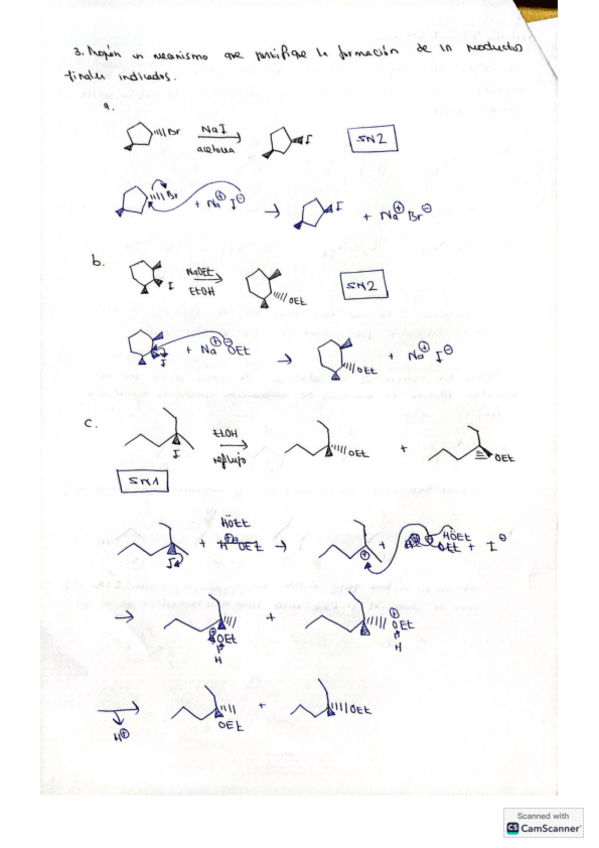 3. Propón un mecanismo que justifique la formación de los productos
finales indicados.
a.
Br NaI acetona I SN2
Br + Na⊕ I⊖ → I + Na⊕ Br⊖
b.
I NaOEt EtOH OEt SN2
I + Na⊕ ⊖OEt → OEt + Na⊕ I⊖
c.
I EtOH reflujo OEt + OEt
SN1
HÖEt
I + → ⊕ HÖEt
OEt + I⊖
→ ⊕OEt H + ⊕OEt H
H⊕ OEt + OEt
Scanned with
CS CamScanner